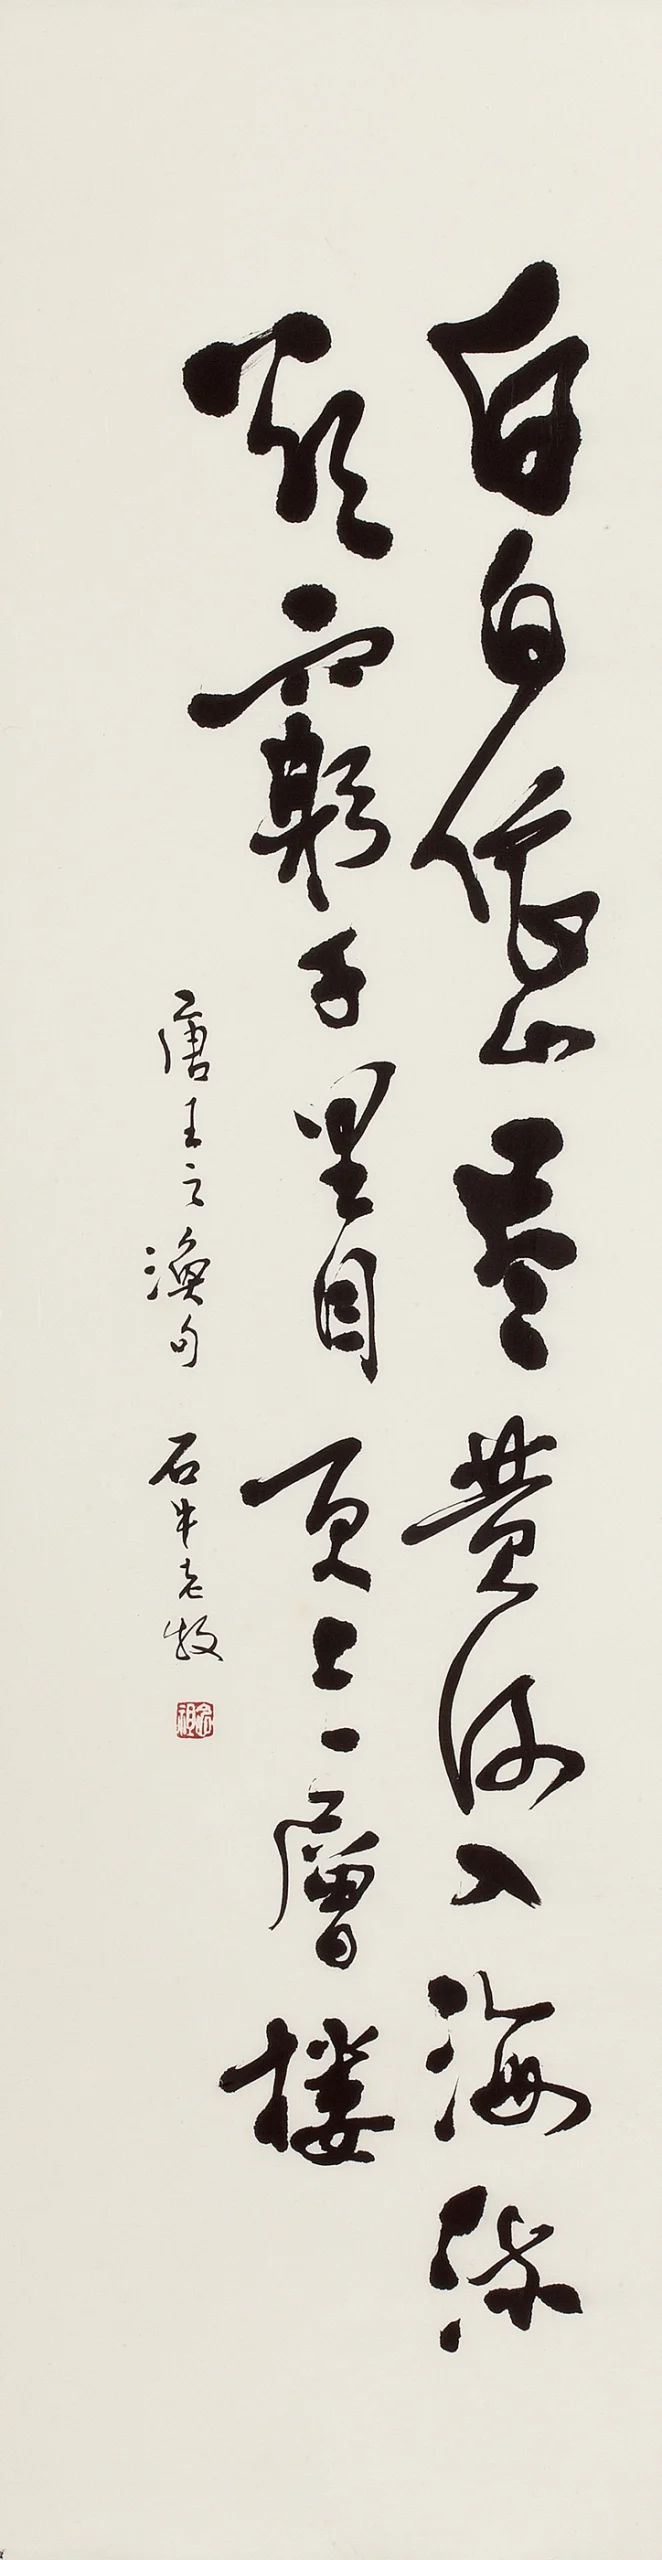 白日依山盡黃河入海流
欲窮千里目更上一層樓
唐王之渙句 石牛老牧